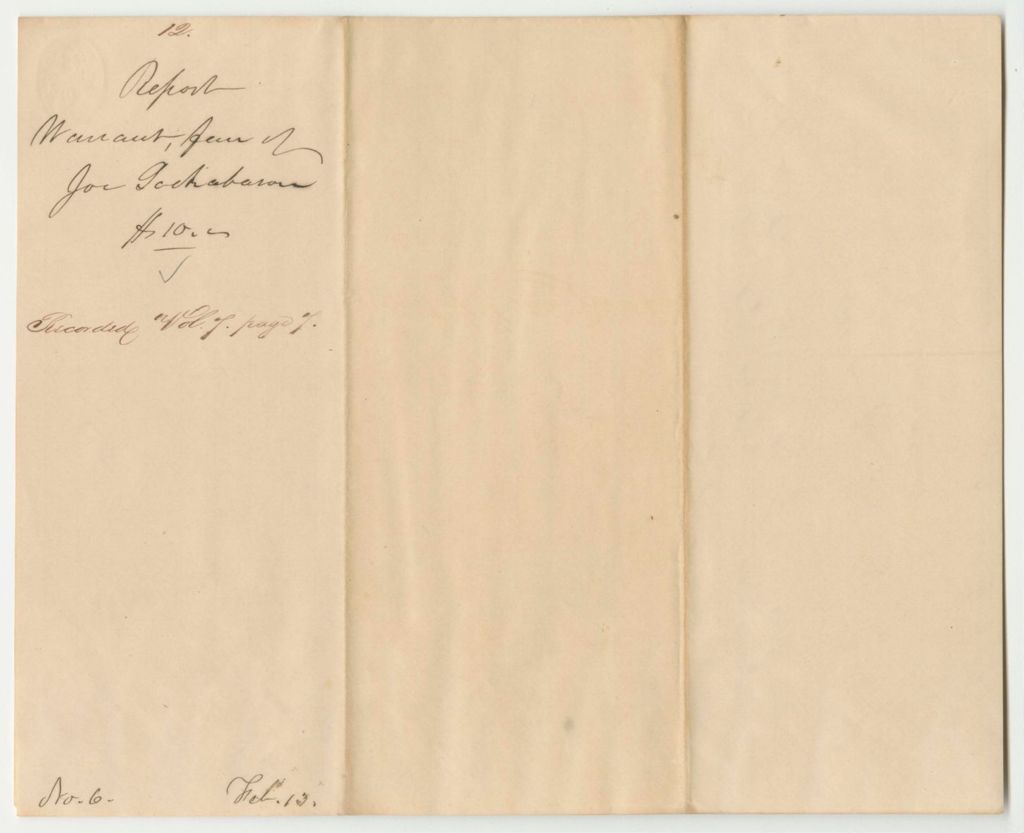 12.
Report
Warrant, favr of
Joe Sockabason
$10..
Recorded Vol. 7. page 7.
No. 6. Feb. 13.